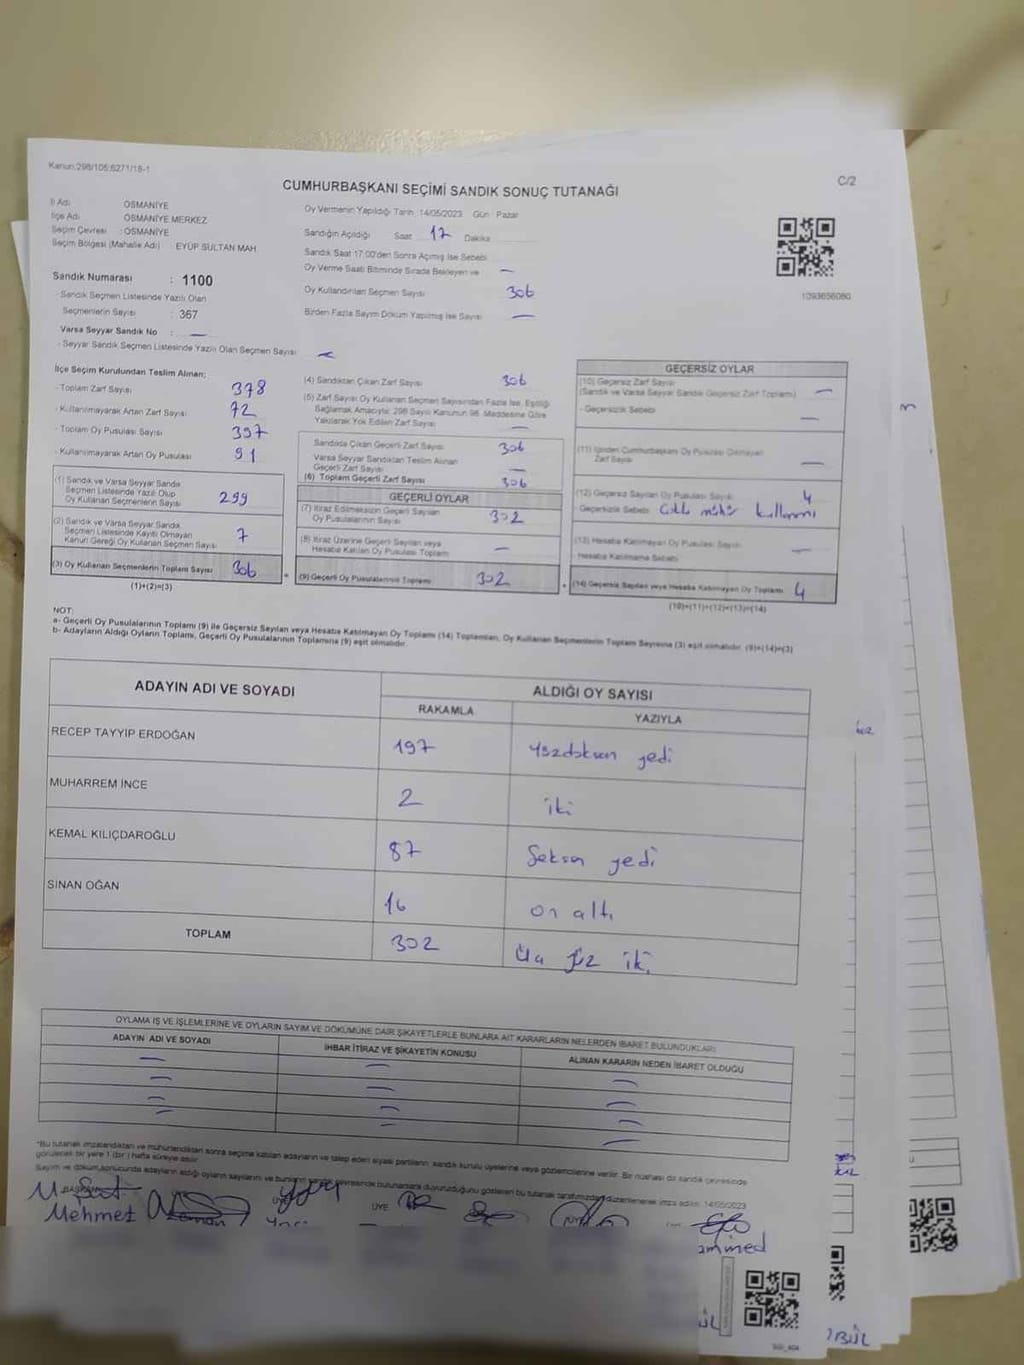 Kanun:298/105;6271/18-1
C/2
CUMHURBAŞKANI SEÇİMİ SANDIK SONUÇ TUTANAĞI
İl Adı OSMANİYE
İlçe Adı OSMANİYE MERKEZ
Seçim Çevresi : OSMANİYE
Seçim Bölgesi (Mahalle Adı) : EYÜP SULTAN MAH
Oy Vermenin Yapıldığı Tarih: 14/05/2023 Gün : Pazar
Sandığın Açıldığı Saat 17 Dakika
Sandık Saat 17:00'den Sonra Açılmış İse Sebebi
Oy Verme Saati Bitiminde Sırada Bekleyen ve —
Oy Kullandırılan Seçmen Sayısı 306
Birden Fazla Sayım Döküm Yapılmış İse Sayısı —
1093656060
Sandık Numarası : 1100
- Sandık Seçmen Listesinde Yazılı Olan
Seçmenlerin Sayısı : 367
Varsa Seyyar Sandık No : —
- Seyyar Sandık Seçmen Listesinde Yazılı Olan Seçmen Sayısı —
İlçe Seçim Kurulundan Teslim Alınan;
- Toplam Zarf Sayısı 378
- Kullanılmayarak Artan Zarf Sayısı 72
- Toplam Oy Pusulası Sayısı 397
- Kullanılmayarak Artan Oy Pusulası 91
(1) Sandık ve Varsa Seyyar Sandık
Seçmen Listesinde Yazılı Olup
Oy Kullanan Seçmenlerin Sayısı 299
(2) Sandık ve Varsa Seyyar Sandık
Seçmen Listesinde Kayıtlı Olmayan
Kanun Gereği Oy Kullanan Seçmen Sayısı 7
(3) Oy Kullanan Seçmenlerin Toplam Sayısı 306
(1)+(2)=(3)
(4) Sandıktan Çıkan Zarf Sayısı 306
(5) Zarf Sayısı Oy Kullanan Seçmen Sayısından Fazla İse, Eşitliği
Sağlamak Amacıyla; 298 Sayılı Kanunun 98. Maddesine Göre
Yakılarak Yok Edilen Zarf Sayısı —
Sandıkta Çıkan Geçerli Zarf Sayısı 306
Varsa Seyyar Sandıktan Teslim Alınan
Geçerli Zarf Sayısı —
(6) Toplam Geçerli Zarf Sayısı 306
GEÇERLİ OYLAR
(7) İtiraz Edilmeksizin Geçerli Sayılan
Oy Pusulalarının Sayısı 302
(8) İtiraz Üzerine Geçerli Sayılan veya
Hesaba Katılan Oy Pusulası Toplamı —
(9) Geçerli Oy Pusulalarının Toplamı 302
GEÇERSİZ OYLAR
(10) Geçersiz Zarf Sayısı
(Sandık ve Varsa Seyyar Sandık Geçersiz Zarf Toplamı) —
- Geçersizlik Sebebi —
(11) İçinden Cumhurbaşkanı Oy Pusulası Çıkmayan
Zarf Sayısı —
(12) Geçersiz Sayılan Oy Pusulası Sayısı 4
- Geçersizlik Sebebi Çoklu mühür kullanımı
(13) Hesaba Katılmayan Oy Pusulası Sayısı —
- Hesaba Katılmama Sebebi
(14) Geçersiz Sayılan veya Hesaba Katılmayan Oy Toplamı 4
(10)+(11)+(12)+(13)=(14)
NOT:
a- Geçerli Oy Pusulalarının Toplamı (9) ile Geçersiz Sayılan veya Hesaba Katılmayan Oy Toplamı (14) Toplamları, Oy Kullanan Seçmenlerin Toplam Sayısına (3) eşit olmalıdır. (9)+(14)=(3)
b- Adayların Aldığı Oyların Toplamı, Geçerli Oy Pusulalarının Toplamına (9) eşit olmalıdır.
ADAYIN ADI VE SOYADI ALDIĞI OY SAYISI
RAKAMLA YAZIYLA
RECEP TAYYİP ERDOĞAN 197 yüzdoksan yedi
MUHARREM İNCE 2 iki
KEMAL KILIÇDAROĞLU 87 Seksen yedi
SİNAN OĞAN 16 on altı
TOPLAM 302 Üç yüz iki
OYLAMA İŞ VE İŞLEMLERİNE VE OYLARIN SAYIM VE DÖKÜMÜNE DAİR ŞİKAYETLERLE BUNLARA AİT KARARLARIN NELERDEN İBARET BULUNDUKLARI
ADAYIN ADI VE SOYADI İHBAR İTİRAZ VE ŞİKAYETİN KONUSU ALINAN KARARIN NEDEN İBARET OLDUĞU
*Bu tutanak imzalandıktan ve mühürlendikten sonra seçime katılan adayların ve talep eden siyasi partilerin sandık kurulu üyelerine veya gözlemcilerine verilir. Bir nüshası da sandık çevresinde
görülecek bir yere 1 (bir) hafta süreyle asılır.
Sayım ve döküm sonucunda adayların aldığı oyların sayılarını ve bunların sandık çevresinde bulunanlara duyurulduğunu gösteren bu tutanak tarafımızdan düzenlenerek imza edildi. 14/05/2023
BAŞKAN ÜYE ÜYE
Mehmet
ammed